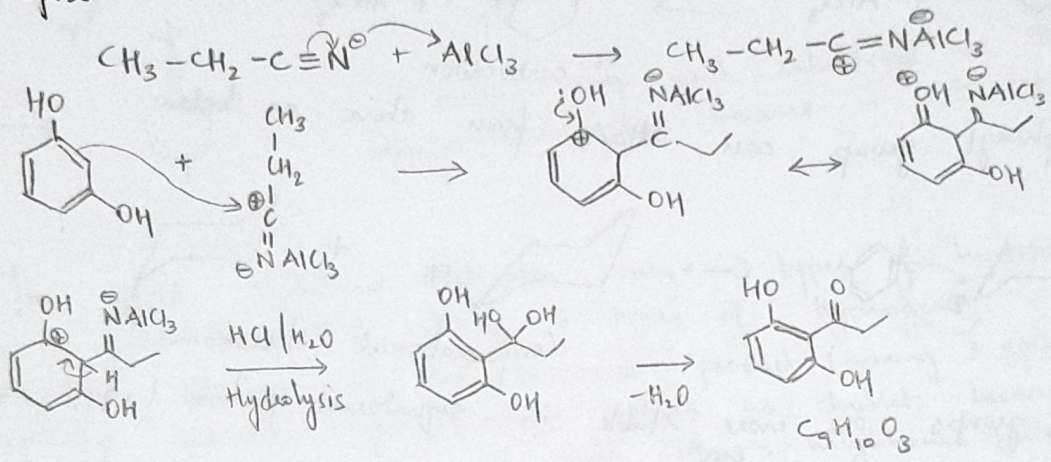 CH₃ – CH₂ – C ≡ N⊖ + AlCl₃ → CH₃ – CH₂ – C = NAlCl₃
⊕ ⊖
HO
OH
+
CH₃
CH₂
⊕
C
⊖ N AlCl₃
→
OH
⊕
⊖
NAlCl₃
C
OH
↔
⊕ ⊖
OH NAlCl₃
OH
OH
⊕
⊖
NAlCl₃
H
OH
HCl/H₂O
Hydrolysis
OH
HO OH
OH
→
-H₂O
HO O
OH
C₉H₁₀O₃